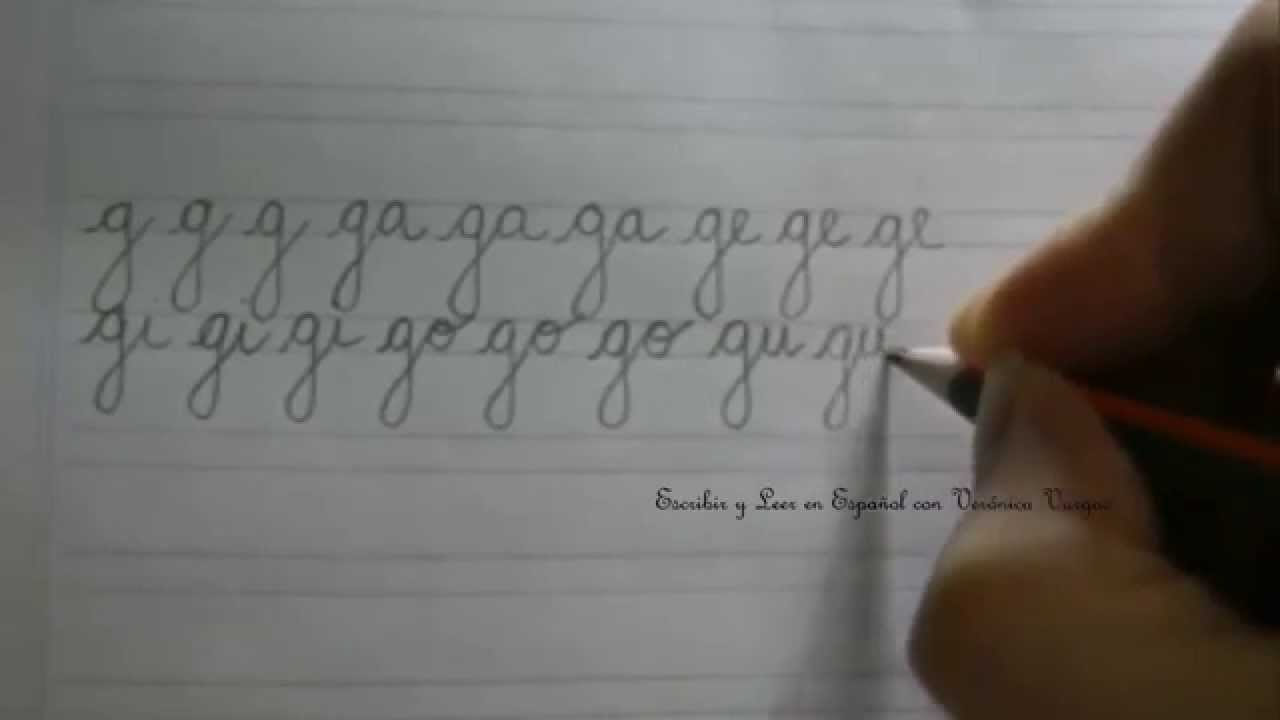 g g g ga ga ga ge ge ge
gi gi gi go go go gu gu
Escribir y Leer en Español con Verónica